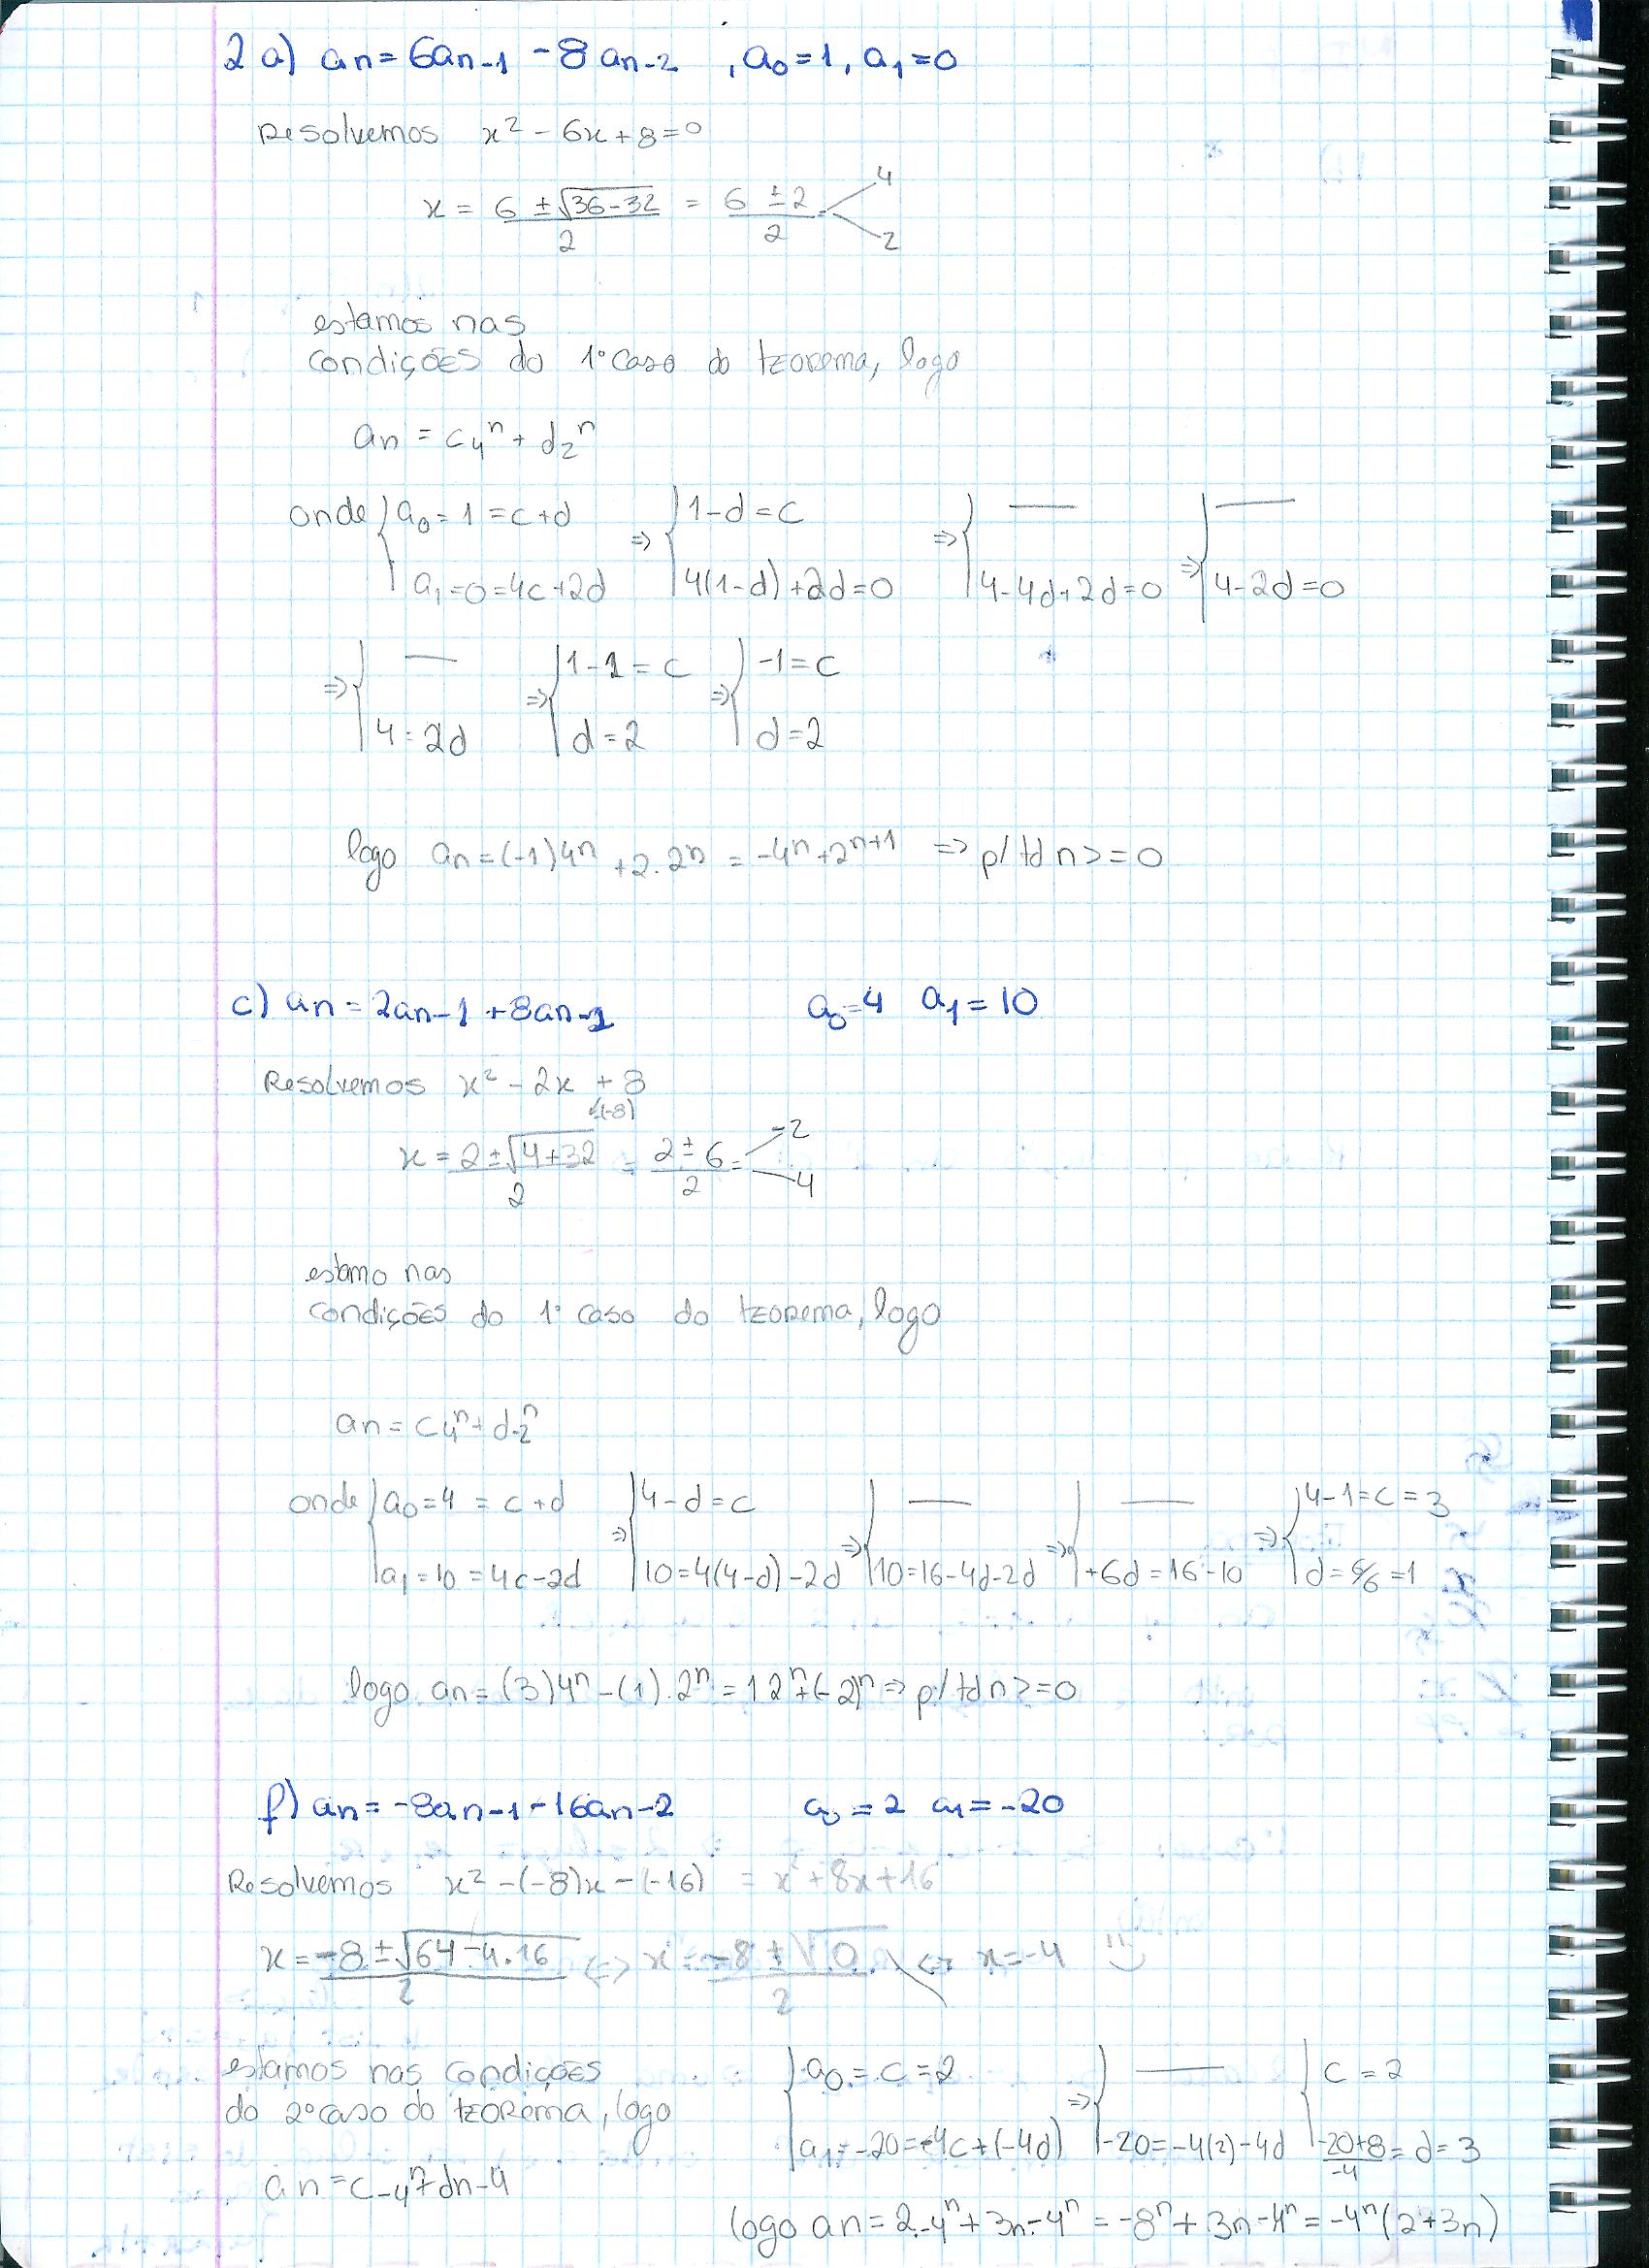 2 a) an = 6an-1 - 8an-2 , a0 = 1, a1 = 0
Resolvemos x² - 6x + 8 = 0
x = 6 ± √36-32 / 2 = 6 ± 2 / 2 4
2
estamos nas
condições do 1º caso do teorema, logo
an = c4ⁿ + d2ⁿ
onde { a0 = 1 = c+d ⇒ { 1-d = c ⇒ { — ⇒ { —
a1 = 0 = 4c+2d 4(1-d)+2d=0 4-4d+2d=0 4-2d=0
⇒ { — ⇒ { 1-2 = c ⇒ { -1 = c
4 = 2d d = 2 d = 2
logo an = (-1)4ⁿ + 2.2ⁿ = -4ⁿ + 2ⁿ⁺¹ => p/ td n >= 0
c) an = 2an-1 + 8an-2 a0 = 4 a1 = 10
Resolvemos x² - 2x + 8
(-8)
x = 2 ± √4+32 / 2 = 2 ± 6 / 2 = -2
4
estamo nas
condições do 1º caso do teorema, logo
an = c4ⁿ + d-2ⁿ
onde { a0 = 4 = c+d ⇒ { 4-d = c ⇒ { — ⇒ { — ⇒ { 4-1 = c = 3
a1 = 10 = 4c-2d 10 = 4(4-d)-2d 10 = 16-4d-2d +6d = 16-10 d = 6/6 = 1
logo an = (3)4ⁿ - (1).2ⁿ = 12ⁿ + (-2)ⁿ => p/ td n >= 0
f) an = -8an-1 - 16an-2 a0 = 2 a1 = -20
Resolvemos x² - (-8)x - (-16) = x² + 8x + 16
x = -8 ± √64-4.16 / 2 <=> x = -8 ± √0 / 2 <=> x = -4 :)
estamos nas condições { a0 = c = 2 ⇒ { — { c = 2
do 2º caso do teorema, logo a1 = -20 = -4c+(-4d) -20 = -4(2)-4d -20+8 / -4 = d = 3
an = c-4ⁿ + dn-4
logo an = 2.-4ⁿ + 3n.-4ⁿ = -8ⁿ + 3n-4ⁿ = -4ⁿ(2+3n)